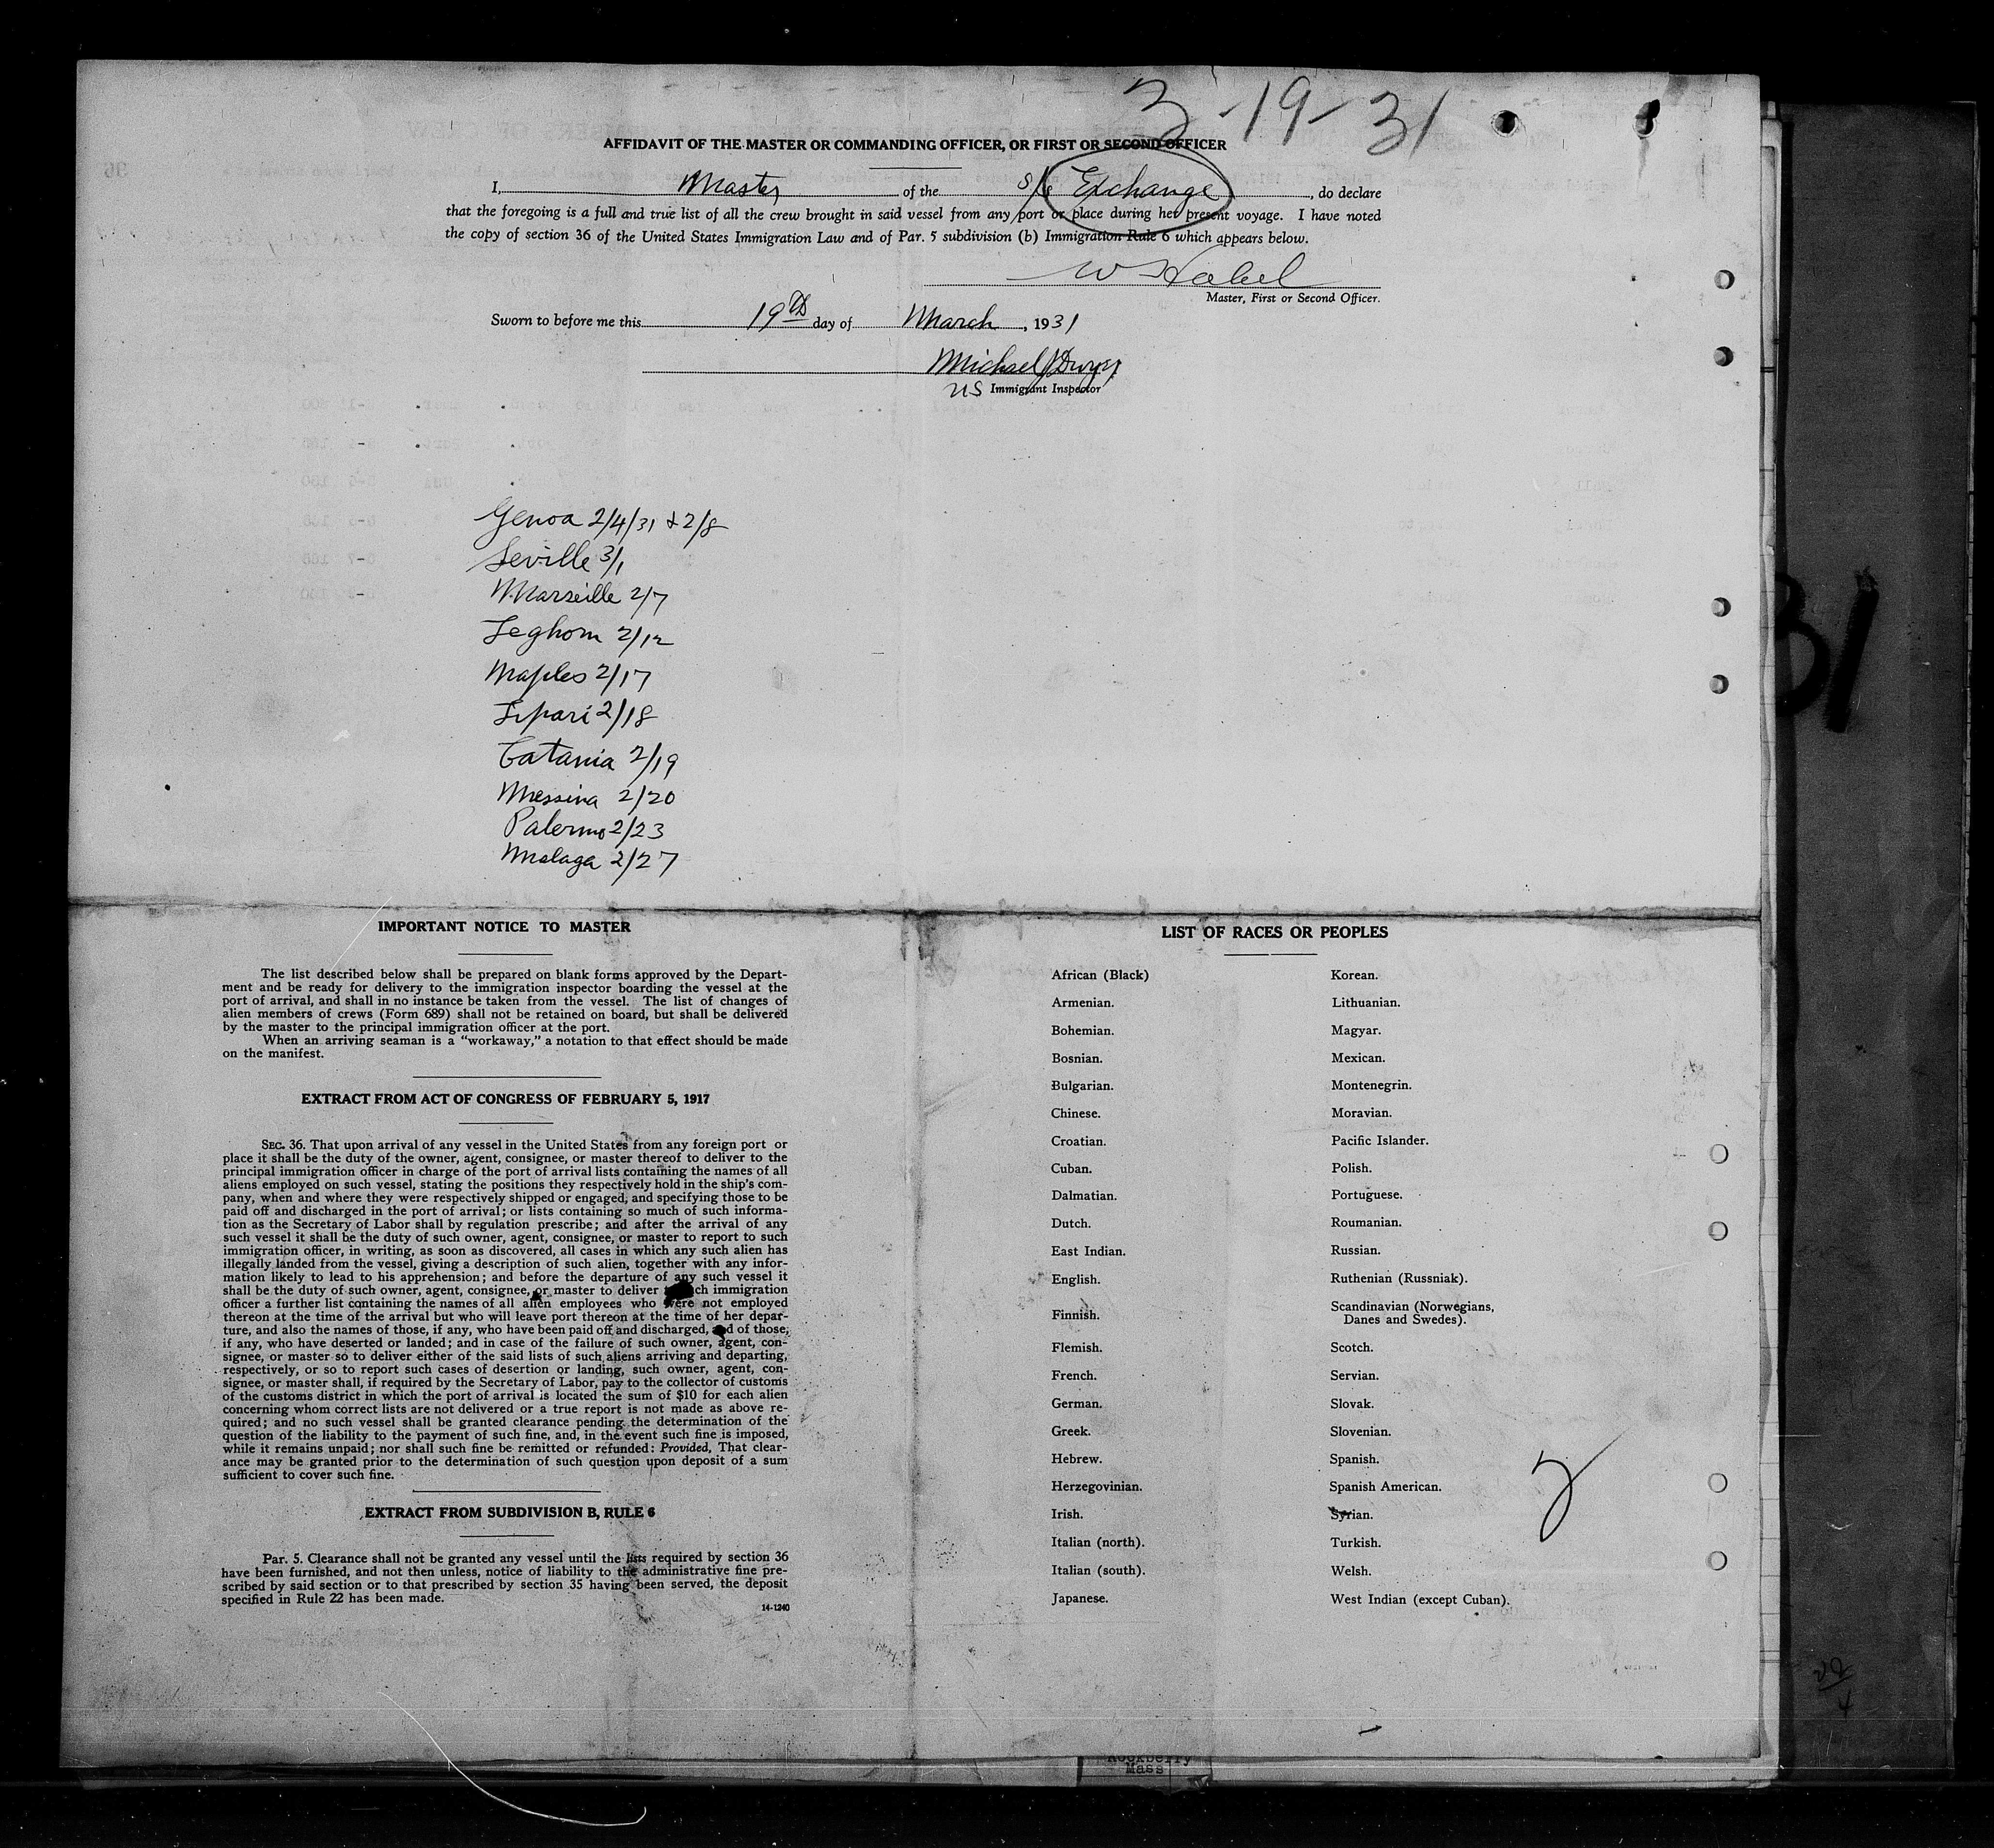 3-19-31
AFFIDAVIT OF THE MASTER OR COMMANDING OFFICER, OR FIRST OR SECOND OFFICER
I, Master of the S/S Exchange, do declare
that the foregoing is a full and true list of all the crew brought in said vessel from any port or place during her present voyage. I have noted
the copy of section 36 of the United States Immigration Law and of Par. 5 subdivision (b) Immigration Rule 6 which appears below.
Master, First or Second Officer.
Sworn to before me this 19th day of March, 1931
Michael Dwyer
US Immigrant Inspector
Genoa 2/4/31 & 2/8
Seville 3/1
Marseille 2/7
Leghorn 2/12
Naples 2/17
Lipari 2/18
Catania 2/19
Messina 2/20
Palermo 2/23
Malaga 2/27
IMPORTANT NOTICE TO MASTER
The list described below shall be prepared on blank forms approved by the Depart-
ment and be ready for delivery to the immigration inspector boarding the vessel at the
port of arrival, and shall in no instance be taken from the vessel. The list of changes of
alien members of crews (Form 689) shall not be retained on board, but shall be delivered
by the master to the principal immigration officer at the port.
When an arriving seaman is a "workaway," a notation to that effect should be made
on the manifest.
EXTRACT FROM ACT OF CONGRESS OF FEBRUARY 5, 1917
SEC. 36. That upon arrival of any vessel in the United States from any foreign port or
place it shall be the duty of the owner, agent, consignee, or master thereof to deliver to the
principal immigration officer in charge of the port of arrival lists containing the names of all
aliens employed on such vessel, stating the positions they respectively hold in the ship's com-
pany, when and where they were respectively shipped or engaged, and specifying those to be
paid off and discharged in the port of arrival; or lists containing so much of such informa-
tion as the Secretary of Labor shall by regulation prescribe; and after the arrival of any
such vessel it shall be the duty of such owner, agent, consignee, or master to report to such
immigration officer, in writing, as soon as discovered, all cases in which any such alien has
illegally landed from the vessel, giving a description of such alien, together with any infor-
mation likely to lead to his apprehension; and before the departure of any such vessel it
shall be the duty of such owner, agent, consignee, or master to deliver ch immigration
officer a further list containing the names of all alien employees who were not employed
thereon at the time of the arrival but who will leave port thereon at the time of her depar-
ture, and also the names of those, if any, who have been paid off and discharged, and of those,
if any, who have deserted or landed; and in case of the failure of such owner, agent, con-
signee, or master so to deliver either of the said lists of such aliens arriving and departing,
respectively, or so to report such cases of desertion or landing, such owner, agent, con-
signee, or master shall, if required by the Secretary of Labor, pay to the collector of customs
of the customs district in which the port of arrival is located the sum of $10 for each alien
concerning whom correct lists are not delivered or a true report is not made as above re-
quired; and no such vessel shall be granted clearance pending the determination of the
question of the liability to the payment of such fine, and, in the event such fine is imposed,
while it remains unpaid; nor shall such fine be remitted or refunded: Provided, That clear-
ance may be granted prior to the determination of such question upon deposit of a sum
sufficient to cover such fine.
EXTRACT FROM SUBDIVISION B, RULE 6
Par. 5. Clearance shall not be granted any vessel until the lists required by section 36
have been furnished, and not then unless, notice of liability to the administrative fine pre-
scribed by said section or to that prescribed by section 35 having been served, the deposit
specified in Rule 22 has been made.
14-1240
LIST OF RACES OR PEOPLES
African (Black)
Armenian.
Bohemian.
Bosnian.
Bulgarian.
Chinese.
Croatian.
Cuban.
Dalmatian.
Dutch.
East Indian.
English.
Finnish.
Flemish.
French.
German.
Greek.
Hebrew.
Herzegovinian.
Irish.
Italian (north).
Italian (south).
Japanese.
Korean.
Lithuanian.
Magyar.
Mexican.
Montenegrin.
Moravian.
Pacific Islander.
Polish.
Portuguese.
Roumanian.
Russian.
Ruthenian (Russniak).
Scandinavian (Norwegians,
Danes and Swedes).
Scotch.
Servian.
Slovak.
Slovenian.
Spanish.
Spanish American.
Syrian.
Turkish.
Welsh.
West Indian (except Cuban).
31
Mass